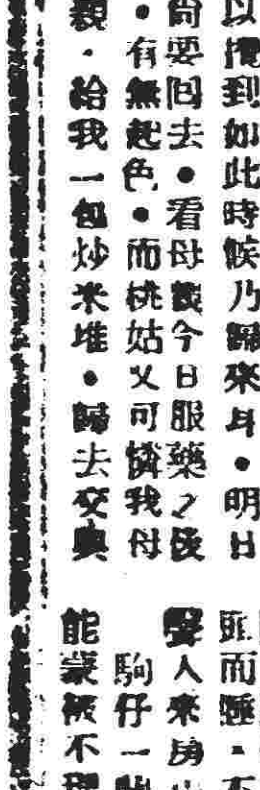 以攪到如此時候乃歸來耳●明日
尙要回去●看母親今日服藥之後
●有無起色●而桃姑又可憐我母
親●給我一包炒米堆●歸去交與
頭而睡●不
聲人來身
駒仔一
能蒙被不理